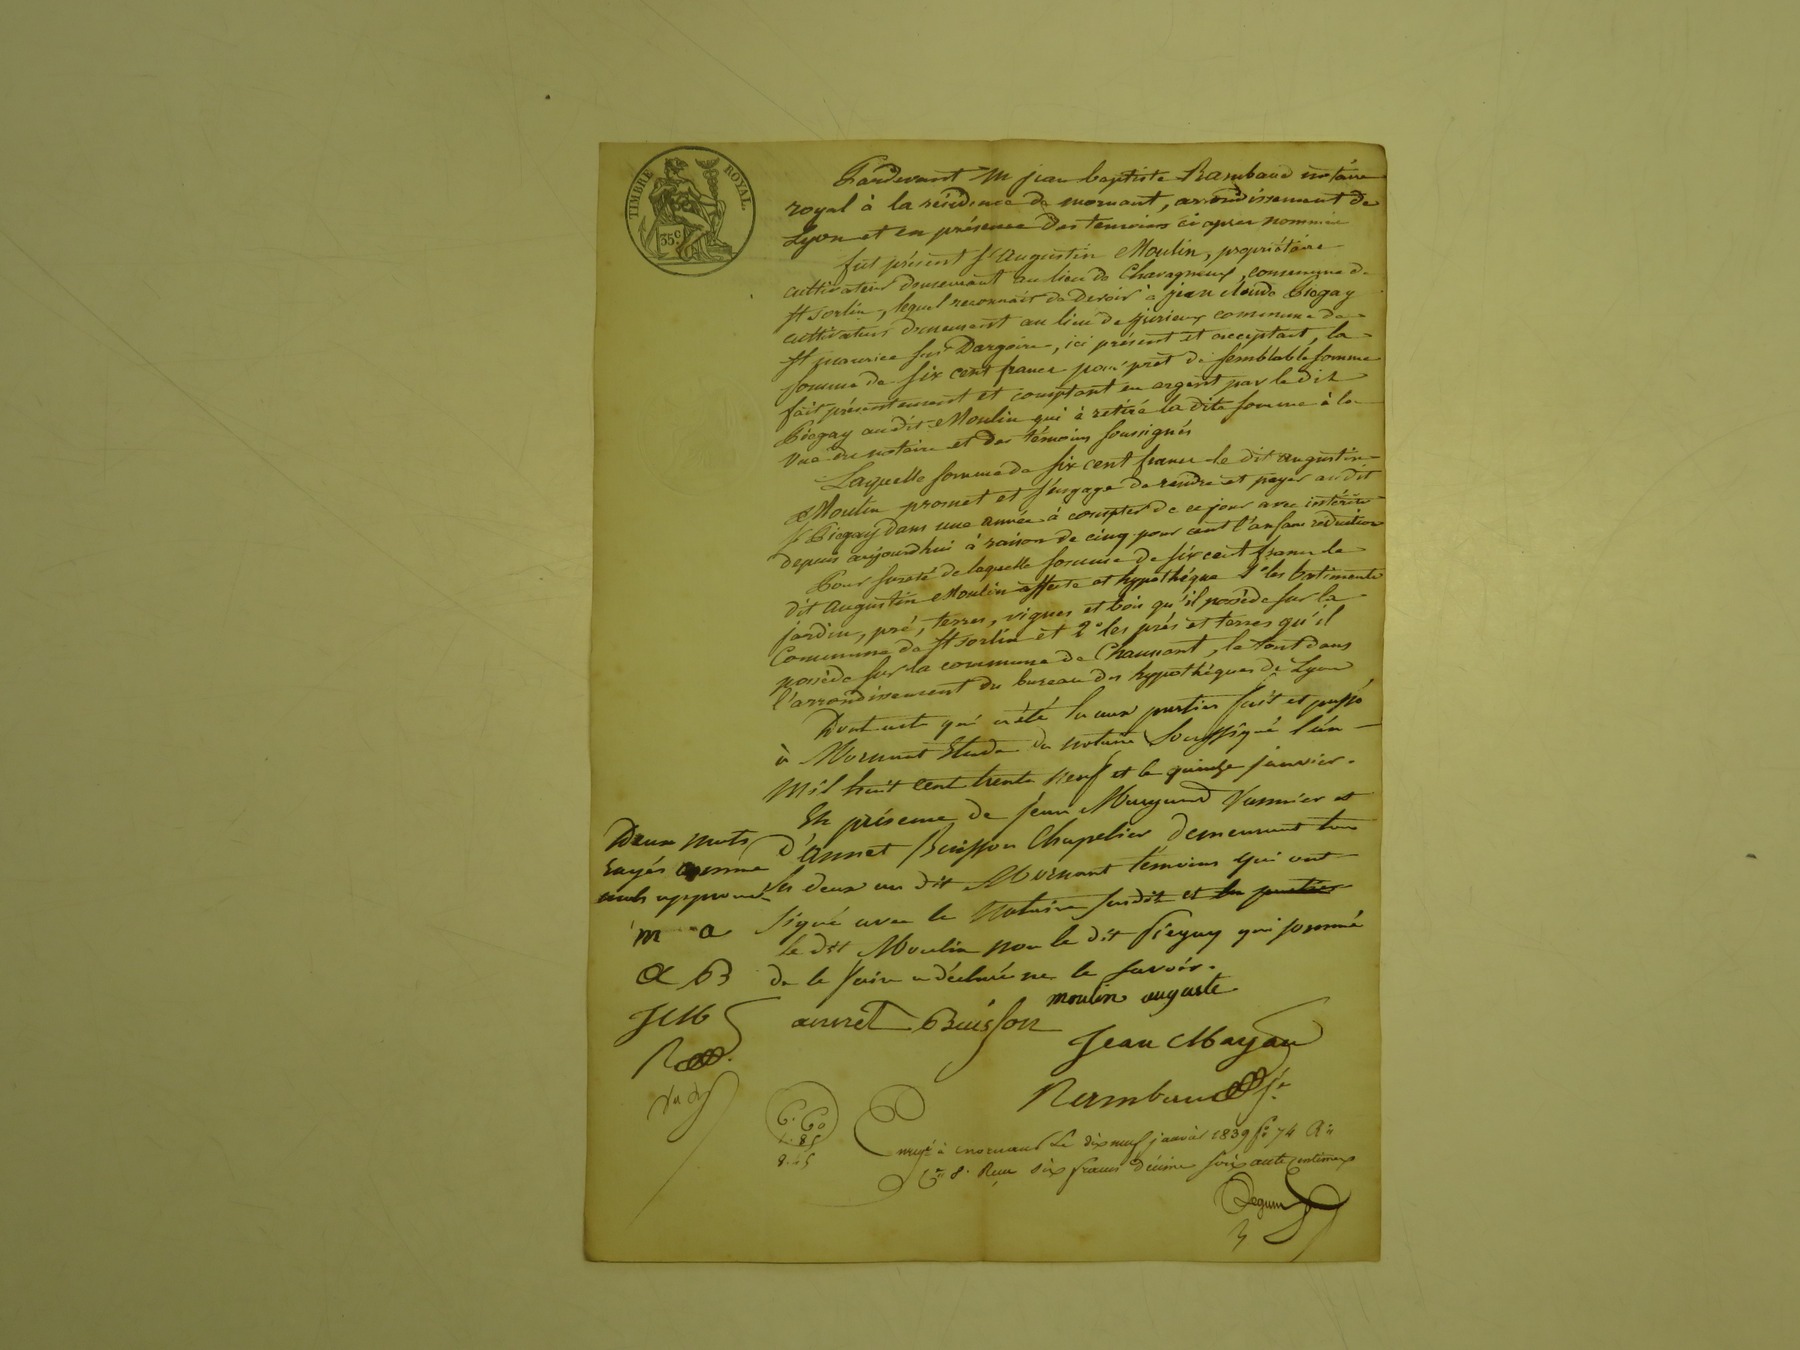 TIMBRE ROYAL
35 c.
Pardevant M jean baptiste Rambaud notaire
royal à la résidence de mornant, arrondissement de
Lyon et en présence des temoins ci après nommés
fut présent Sr augustin Moulin, propriétaire
cultivateur demeurant au lieu de Chavagneux, commune de
St Sorlin, lequel reconnait de devoir à jean claude Piegay
cultivateur demeurant au lieu de jurieux commune de
St maurice sur Dargoire, ici présent et acceptant, la
somme de six cent francs pour prêt de semblable somme
fait présentement et comptant en argent par le dit
Piegay au dit Moulin qui à retiré la dite somme à la
vue du notaire et des témoins soussignés
Laquelle somme de six cent francs le dit augustin
Moulin promet et s'engage de rendre et payer au dit
Sr Piegay dans une année à compter de ce jour avec intérêts
depuis aujourdhui à raison de cinq pour cent l'an sans réduction
Pour sureté de laquelle somme de six cent francs le
dit augustin Moulin affecte et hypothèque 1° les batiments
jardin, pré, terres, vignes et bois qu'il possède sur la
Commune de St Sorlin et 2° les prés et terres qu'il
possède sur la commune de Chaussant, le tout dans
l'arrondissement du bureau des hypothèques de Lyon
Dont acte qui a été lu aux parties fait et passé
à Mornant Etude du notaire Soussigné l'an
mil huit cent trente neuf et le quinze janvier.
En présence de jean Vannier et
d'annet Buisson Chapelier demeurant tous
les deux au dit Mornant témoins qui ont
signé avec le Notaire susdit et les parties
le dit Moulin non le dit Piegay qui sommé
de le faire a déclaré ne le savoir.
Deux mots
rayés comme
nuls approuvés
m a
a B
J M
R
moulin auguste
annet Buisson
Jean Mayan
Rambaud
6. 60
Enregé à mornant le dix neuf janvier 1839 fo 74 Ro
Ce 8. Reçu six francs décime soixante centimes